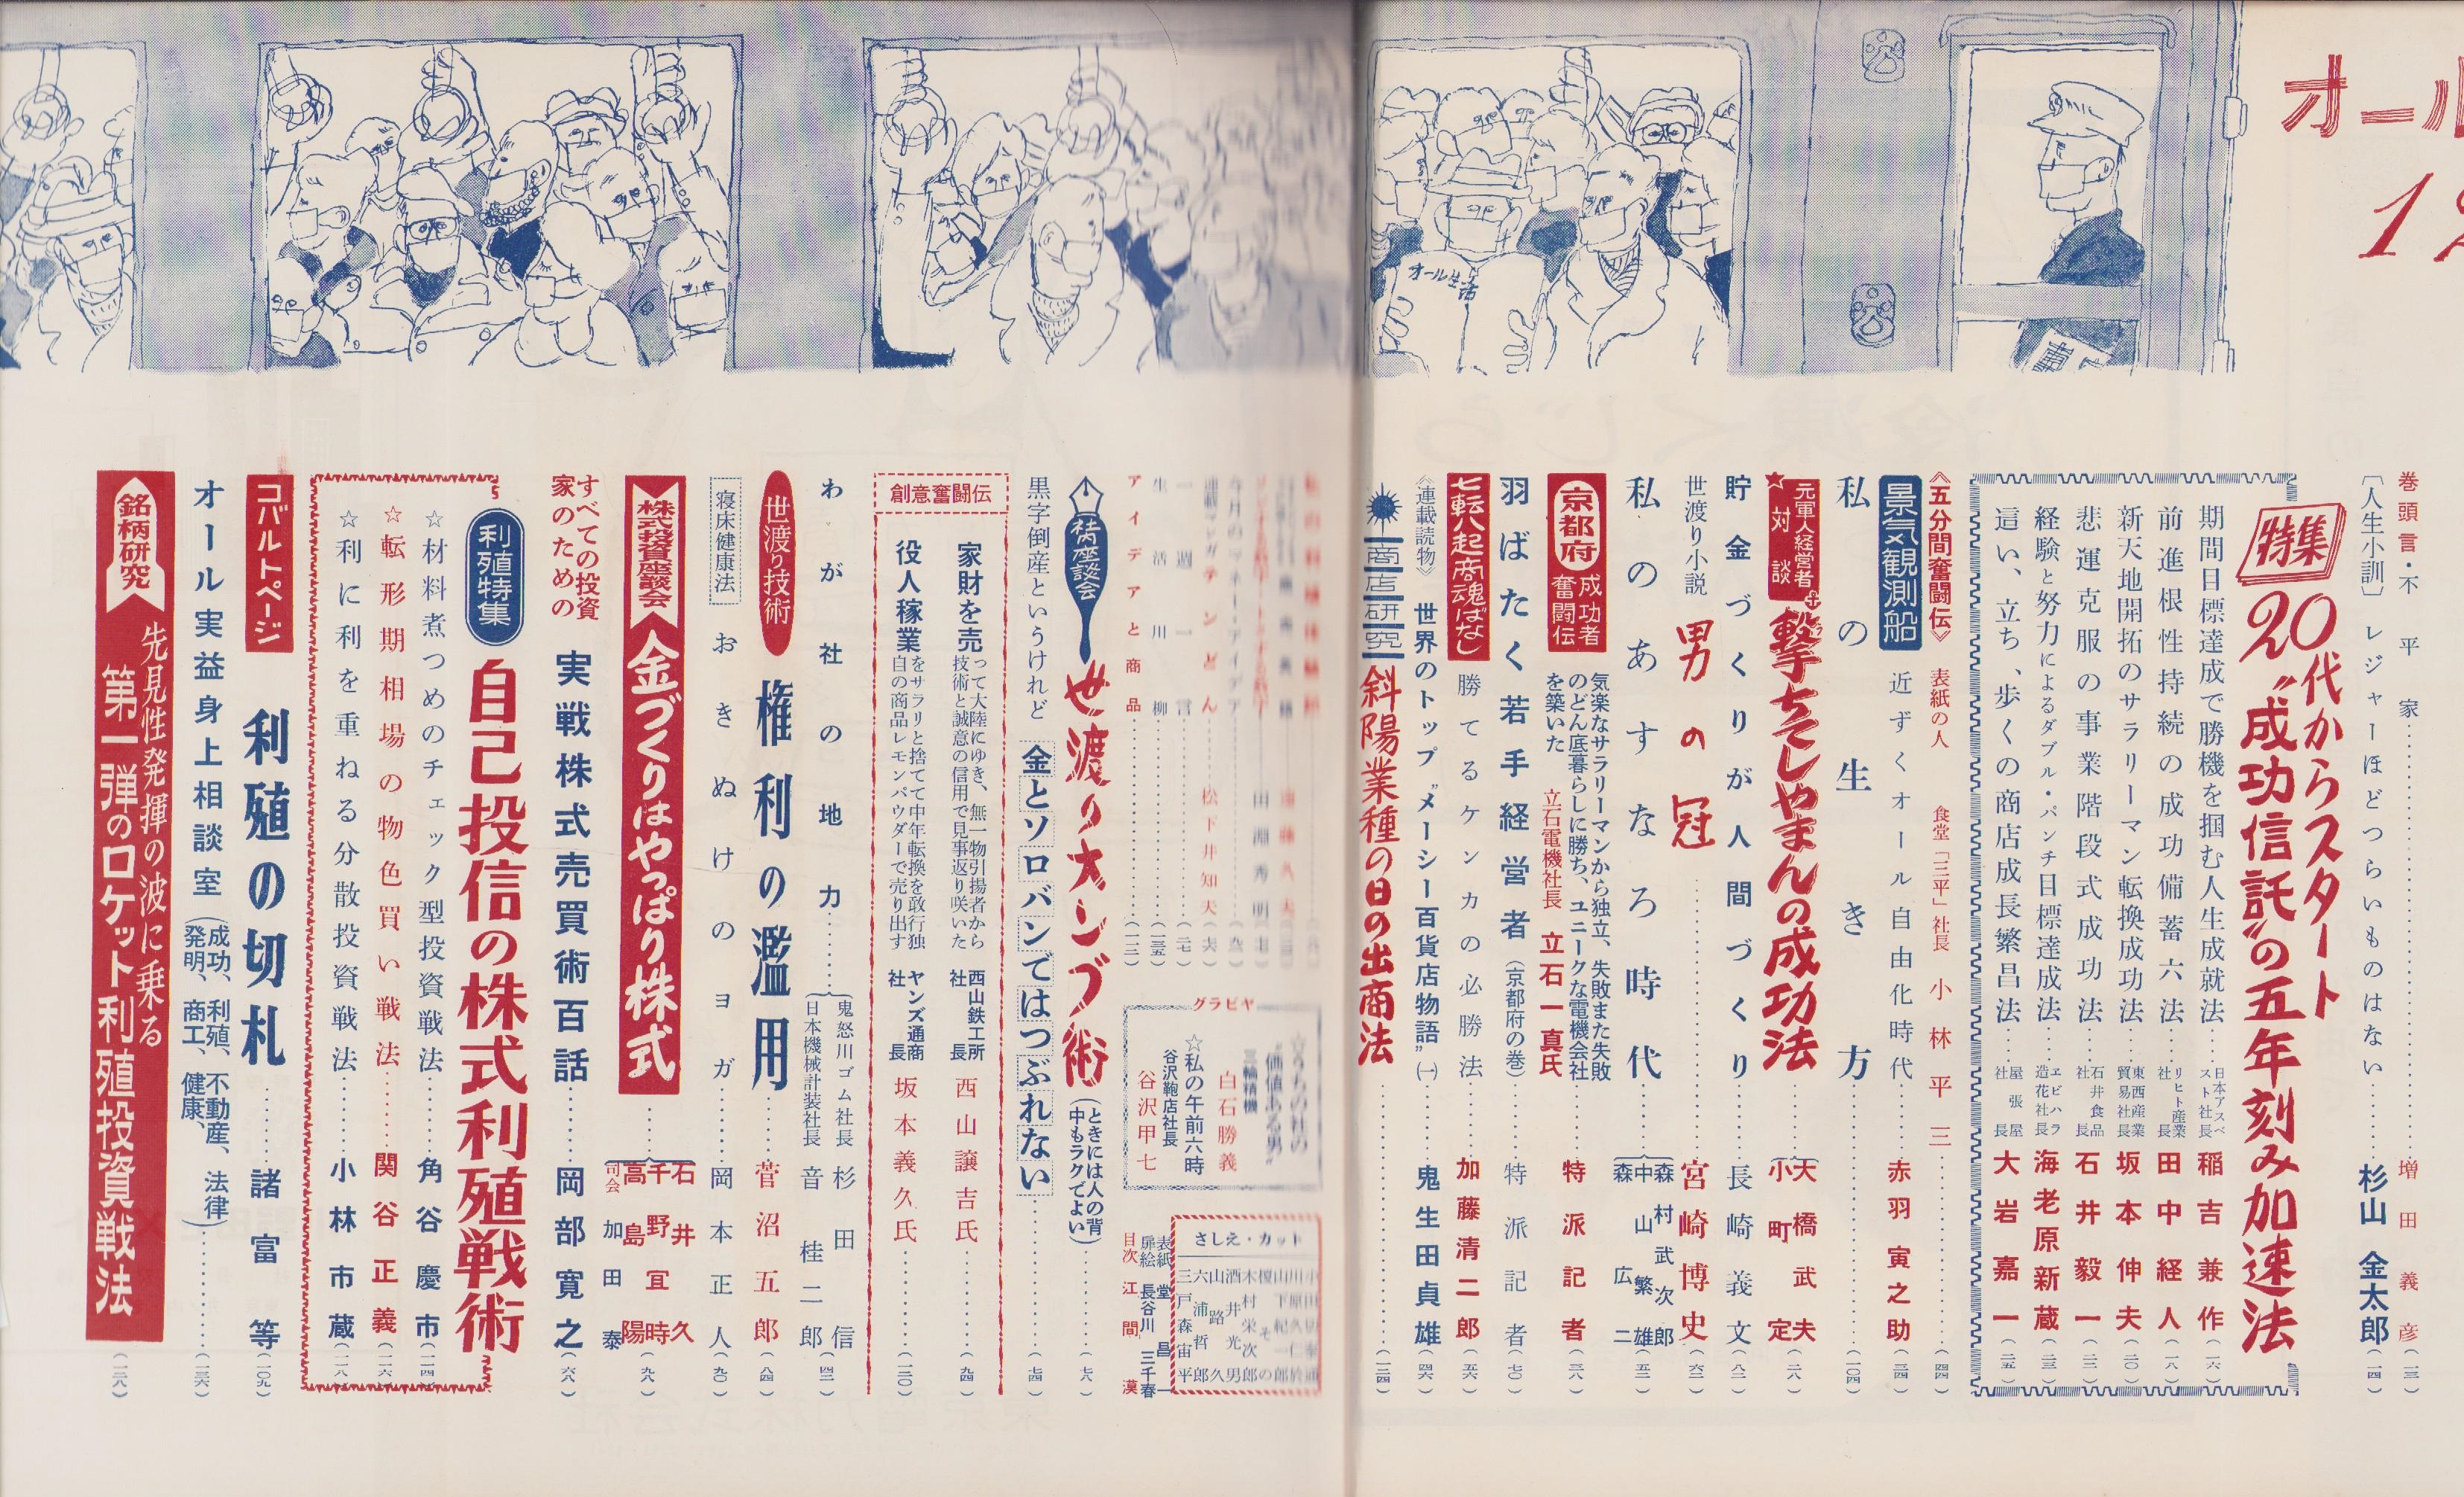 オール
1
オール生活
巻頭言・不平家………増田義彦(一三)
〔人生小訓〕レジャーほどつらいものはない………杉山金太郎(一四)
特集
20代からスタート
〝成功信託〟の五年刻み加速法
期間目標達成で勝機を掴む人生成就法……日本アスベスト社長 稲吉兼作(一六)
前進根性持続の成功備蓄六法……リヒト産業社長 田中経人(一八)
新天地開拓のサラリーマン転換成功法……東西産業貿易社長 坂本伸夫(二〇)
悲運克服の事業階段式成功法……石井食品社長 石井毅一(二二)
経験と努力によるダブル・パンチ目標達成法……エビハラ造花社長 海老原新蔵(二三)
這い、立ち、歩くの商店成長繁昌法……屋張屋社長 大岩嘉一(二五)
《五分間奮闘伝》表紙の人 食堂「三平」社長 小林平三………(四四)
景気観測船 近ずくオール自由化時代………赤羽寅之助(三四)
私の生き方………(一〇四)
★元軍人経営者対談 撃ちてしやまんの成功法……大橋武夫 小町定(二八)
貯金づくりが人間づくり……長崎義文(八二)
世渡り小説 男の冠………宮崎博史(六二)
私のあすなろ時代……森村武次郎 中山繁雄 森広二(五二)
京都府 成功者奮闘伝
気楽なサラリーマンから独立、失敗また失敗
のどん底暮らしに勝ち、ユニークな電機会社
を築いた 立石電機社長 立石一真氏……特派記者(三八)
羽ばたく若手経営者(京都府の巻)……特派記者(七〇)
七転八起商魂ばなし 勝てるケンカの必勝法……加藤清二郎(五六)
《連載読物》世界のトップ〝メーシー百貨店物語〟(一)……鬼生田貞雄(四六)
商店研究 斜陽業種の日の出商法………(一二四)
松下井知夫(六六)
一週一言………(二七)
生活川柳………(一三五)
アイデアと商品………(一三)
グラビヤ
〝価値ある男〟
三輪精機 白石勝義
☆私の午前六時
谷沢鞄店社長 谷沢甲七
さしえ・カット
木村栄次郎
酒井光男
山路久
六浦哲郎
三戸森宙平
表紙 堂昌一
扉絵 長谷川三千春
目次 江間漠
街の座談会 世渡り大ンブ術(ときには人の背中もラクでよい)………(七八)
黒字倒産というけれど 金とソロバンではつぶれない………(七四)
創意奮闘伝
家財を売って大陸にゆき、無一物引揚者から
技術と誠意の信用で見事返り咲いた 西山鉄工所社長 西山譲吉氏………(九四)
役人稼業をサラリと捨てて中年転換を敢行独
自の商品レモンパウダーで売り出す ヤンズ通商社長 坂本義久氏………(一二〇)
わが社の地力……鬼怒川ゴム社長 杉田信 日本機械計装社長 音桂二郎(四二)
世渡り技術 権利の濫用……菅沼五郎(八四)
寝床健康法 おきぬけのヨガ……岡本正人(九〇)
株式投資座談会 金づくりはやっぱり株式……石井久 千野宜時 高島陽 司会 加田泰(九八)
すべての投資家のための 実戦株式売買術百話……岡部寛之(六八)
利殖特集 自己投信の株式利殖戦術
☆材料煮つめのチェック型投資戦法……角谷慶市(一一四)
☆転形期相場の物色買い戦法……関谷正義(一一六)
☆利に利を重ねる分散投資戦法……小林市蔵(一一八)
コバルトページ 利殖の切札……諸富等(一〇九)
オール実益身上相談室(成功、利殖、不動産、法律 発明、商工、健康、)………(一三六)
銘柄研究 先見性発揮の波に乗る
第一弾のロケット利殖投資戦法(一二八)